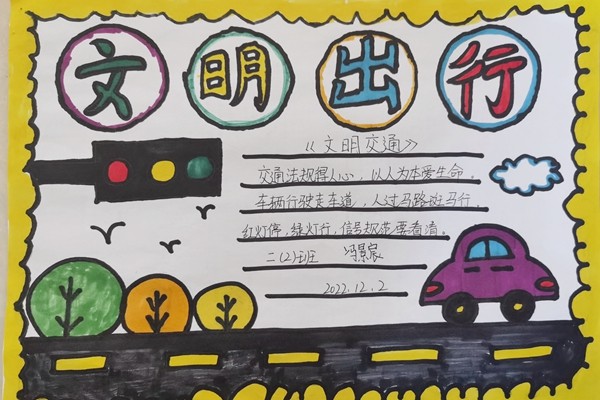 文明出行
《文明交通》
交通法规得人心，以人为本爱生命。
车辆行驶走车道，人过马路斑马行。
红灯停，绿灯行，信号规范要看清。
二(2)班 冯景宸
2022.12.2